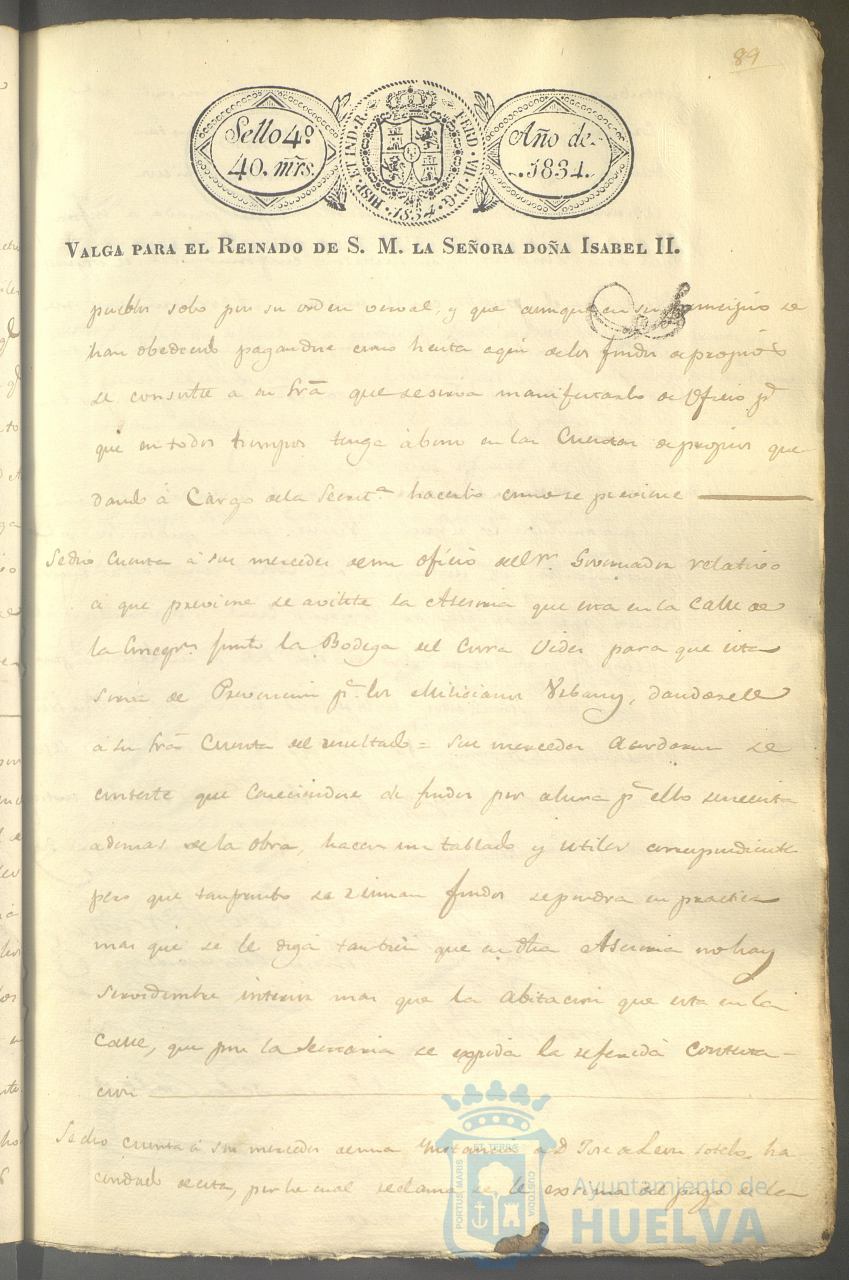 89
Sello 4º
40. mrs.
HISP. ET IND. R. FERD. VII. D. G. 1834
Año de
1834.
VALGA PARA EL REINADO DE S. M. LA SEÑORA DOÑA ISABEL II.
pueblos solo por su orden verval, y que aunque en su principio se
han obedecido pagandose como hasta aqui de los fondos de propios
se consulte a su Sria que se sirva manifestarlo de Oficio pª
que en todos tiempos tenga abono en las Cuentas de propios que
dando à Cargo de la Secretª hacerlo como se previene
Se dio Cuenta à sus mercedes de un oficio del Sr. Governador relativo
a que previene se avilite la que esta en la Calle de
la junto la Bodega del Curra para que esta
sirva de Prevencion pª los Milicianos Urbanos, dandosele
à su Sria Cuenta del resultado = sus mercedes Acordaron se
conteste que Careciendose de fondos por ahora pª ello se necesita
ademas de la obra, hacer un tablado y utiles correspondientes
pero que tan pronto se reunan fondos se pondra en practica
mas que se le diga tambien que en dha no hay
interior mas que la abitacion que esta en la
Calle, que por la Secretaria se expida la referida Contesta-
cion
Se dio cuenta à sus mercedes de una Ynstancia de D. Jose de Leon Sotelo, ha
de esta, por la cual reclama se le exsima del pago de la
PORTUS MARIS ET TERRE CUSTODIA
Ayuntamiento de
HUELVA